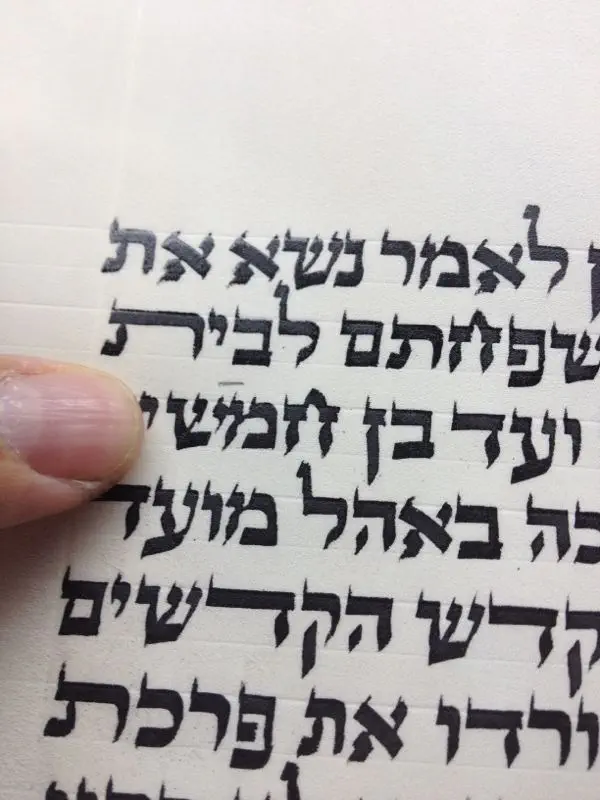 לאמר נשא את
שפחתם לבית
ועד בן חמישי
כה באהל מועד
קדש הקדשים
ורדו את פרכת